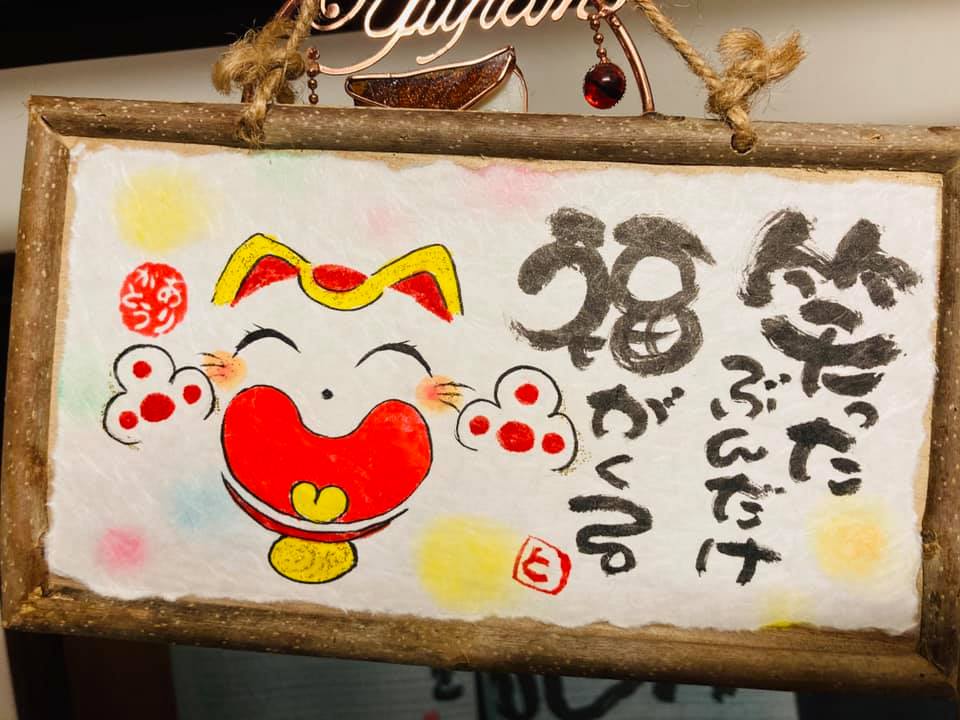 笑った
ぶんだけ
福がくる
あり
がとう
と